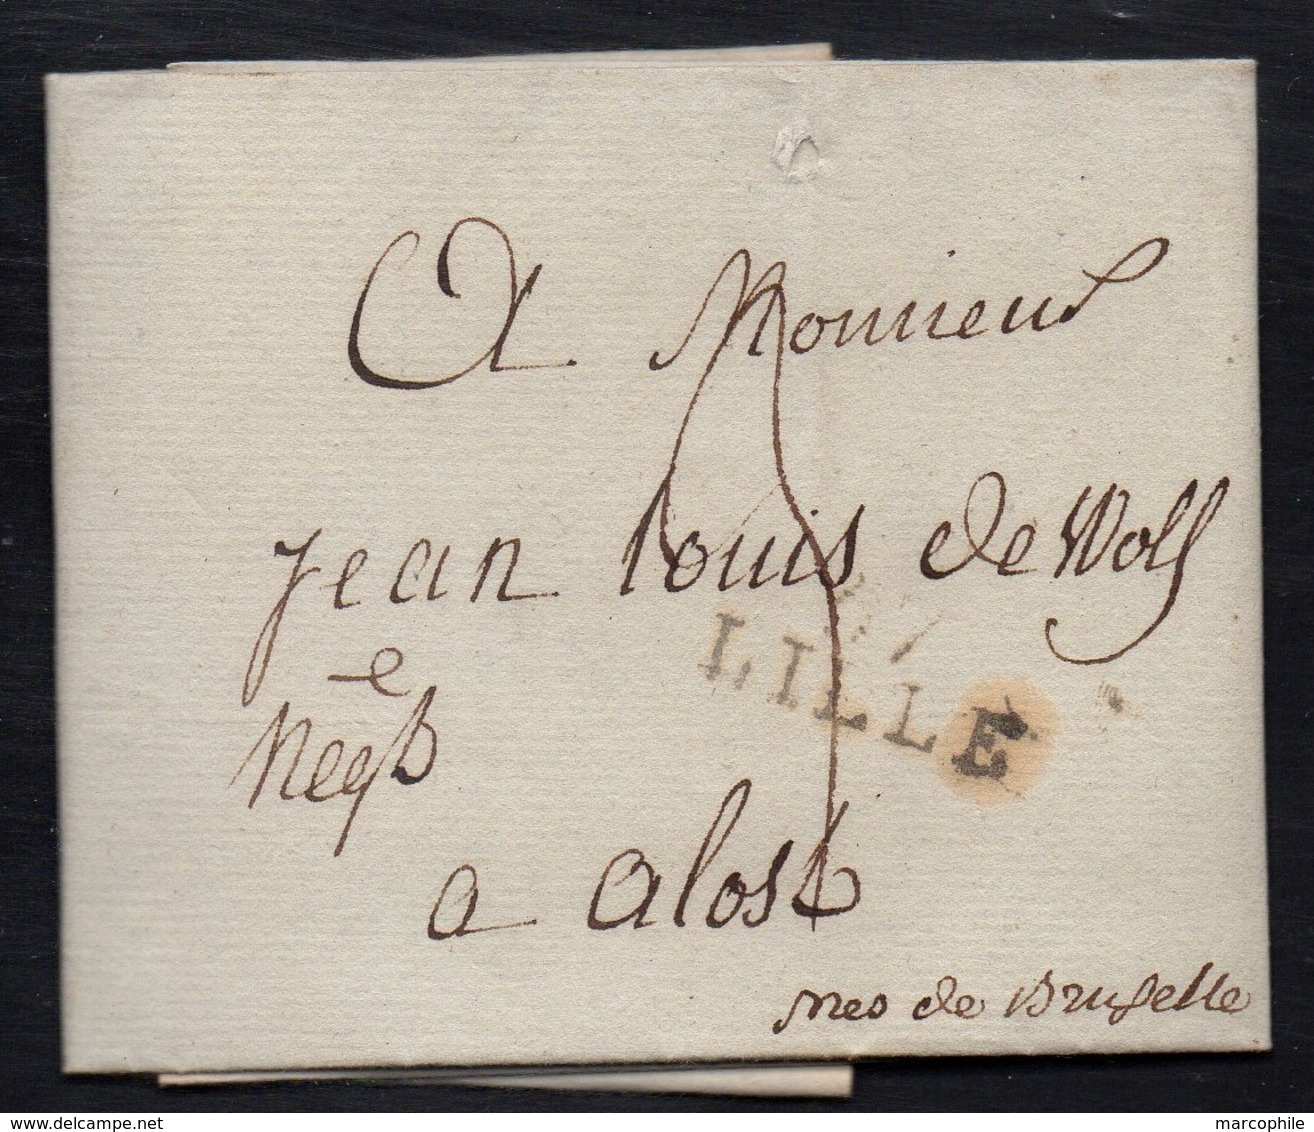 A Monsieur
Jean louis de Wolf
Negt e
a alost
LILLE
pres de Bruxelle
www.delcampe.net
marcophile